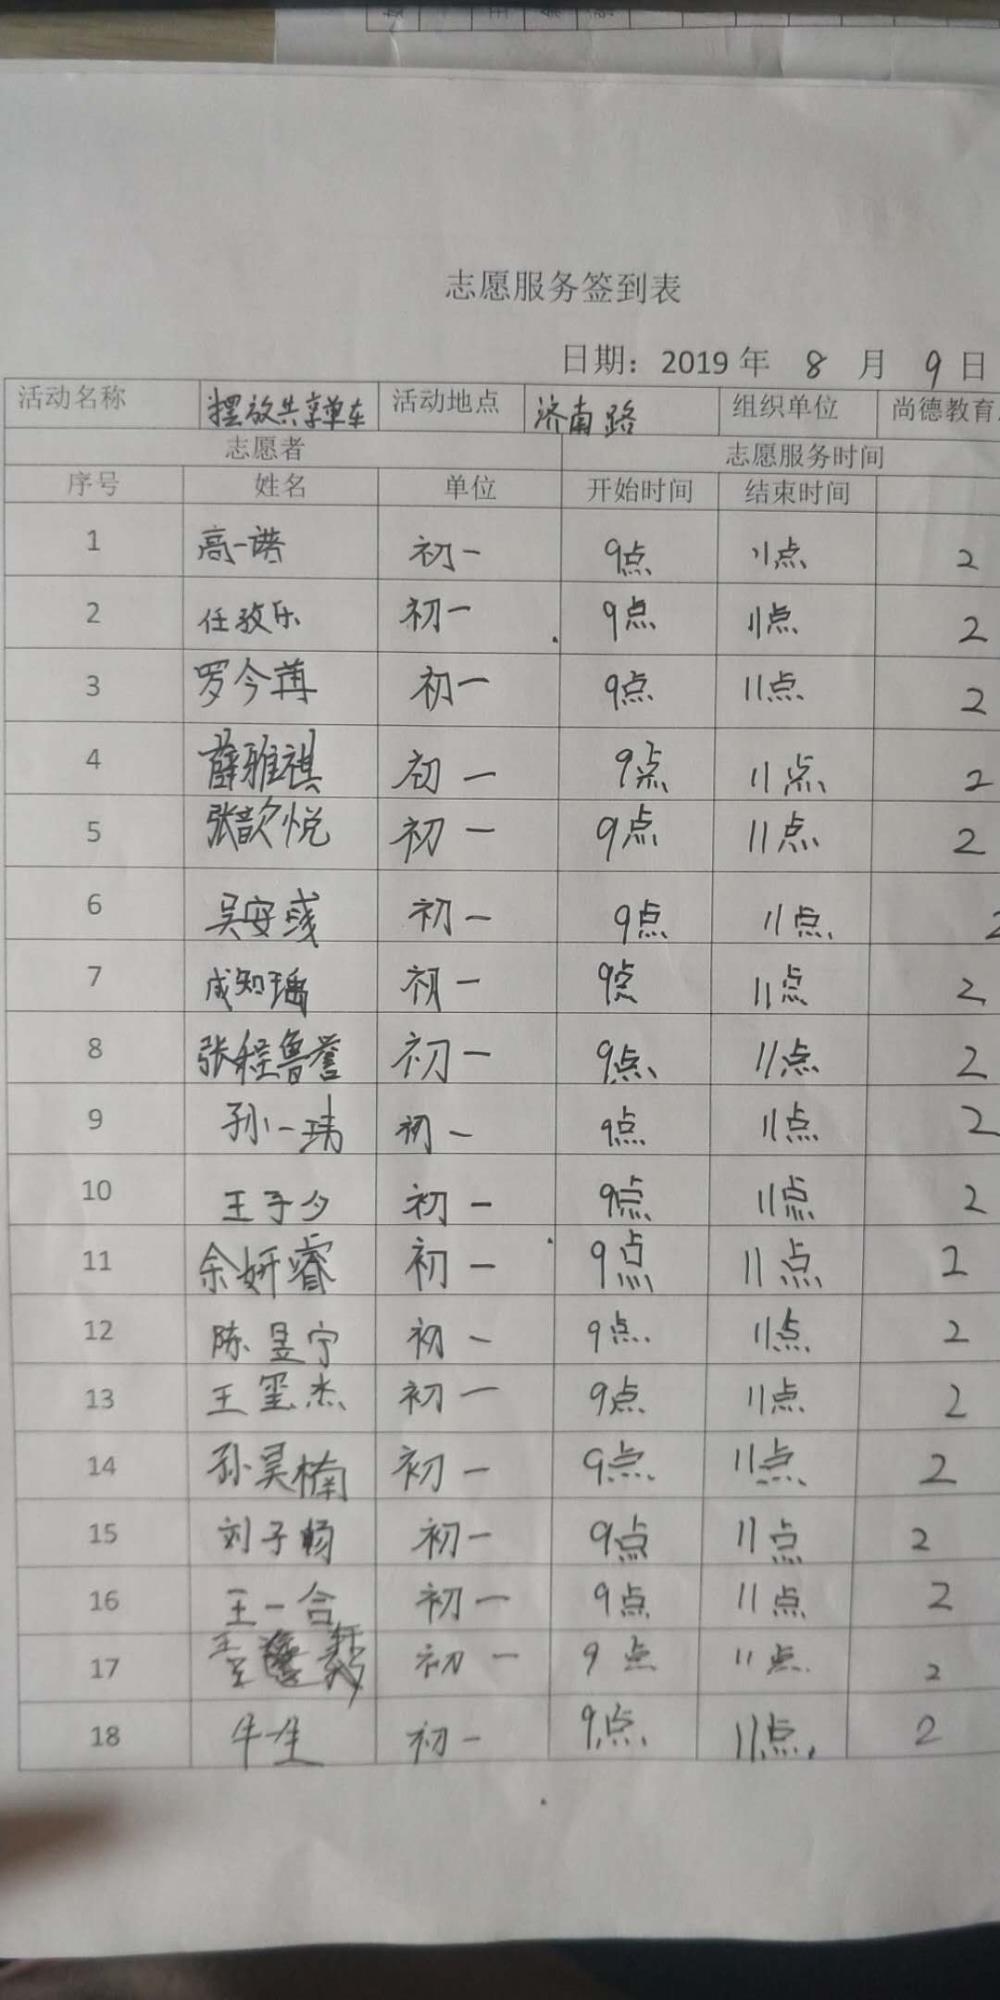 志愿服务签到表
日期：2019 年 8 月 9 日
活动名称 摆放共享单车 活动地点 济南路 组织单位 尚德教育
志愿者 志愿服务时间
序号 姓名 单位 开始时间 结束时间
1 高一诺 初一 9点 11点 2
2 任致乐 初一 9点 11点 2
3 罗今苒 初一 9点 11点 2
4 薛雅祺 初一 9点 11点 2
5 张歆悦 初一 9点 11点 2
6 吴安彧 初一 9点 11点 2
7 成知瑀 初一 9点 11点 2
8 张程鲁誉 初一 9点 11点 2
9 孙一玮 初一 9点 11点 2
10 王予夕 初一 9点 11点 2
11 余妍睿 初一 9点 11点 2
12 陈昱宁 初一 9点 11点 2
13 王玺杰 初一 9点 11点 2
14 孙昊楠 初一 9点 11点 2
15 刘子畅 初一 9点 11点 2
16 王一合 初一 9点 11点 2
17 初一 9点 11点 2
18 牛生 初一 9点 11点 2